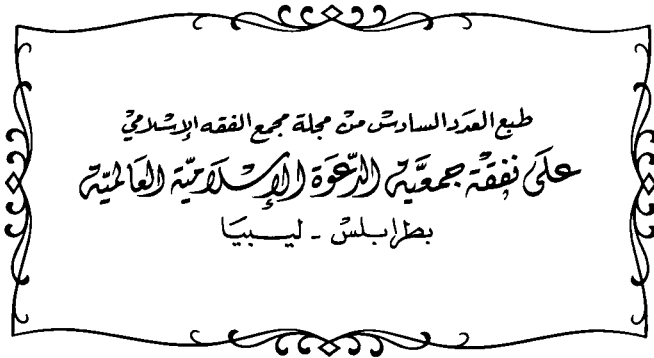 طبع العدد السادس من مجلة مجمع الفقه الإسلامي
على نفقة جمعية الدعوة الإسلامية العالمية
بطرابلس - ليبيا